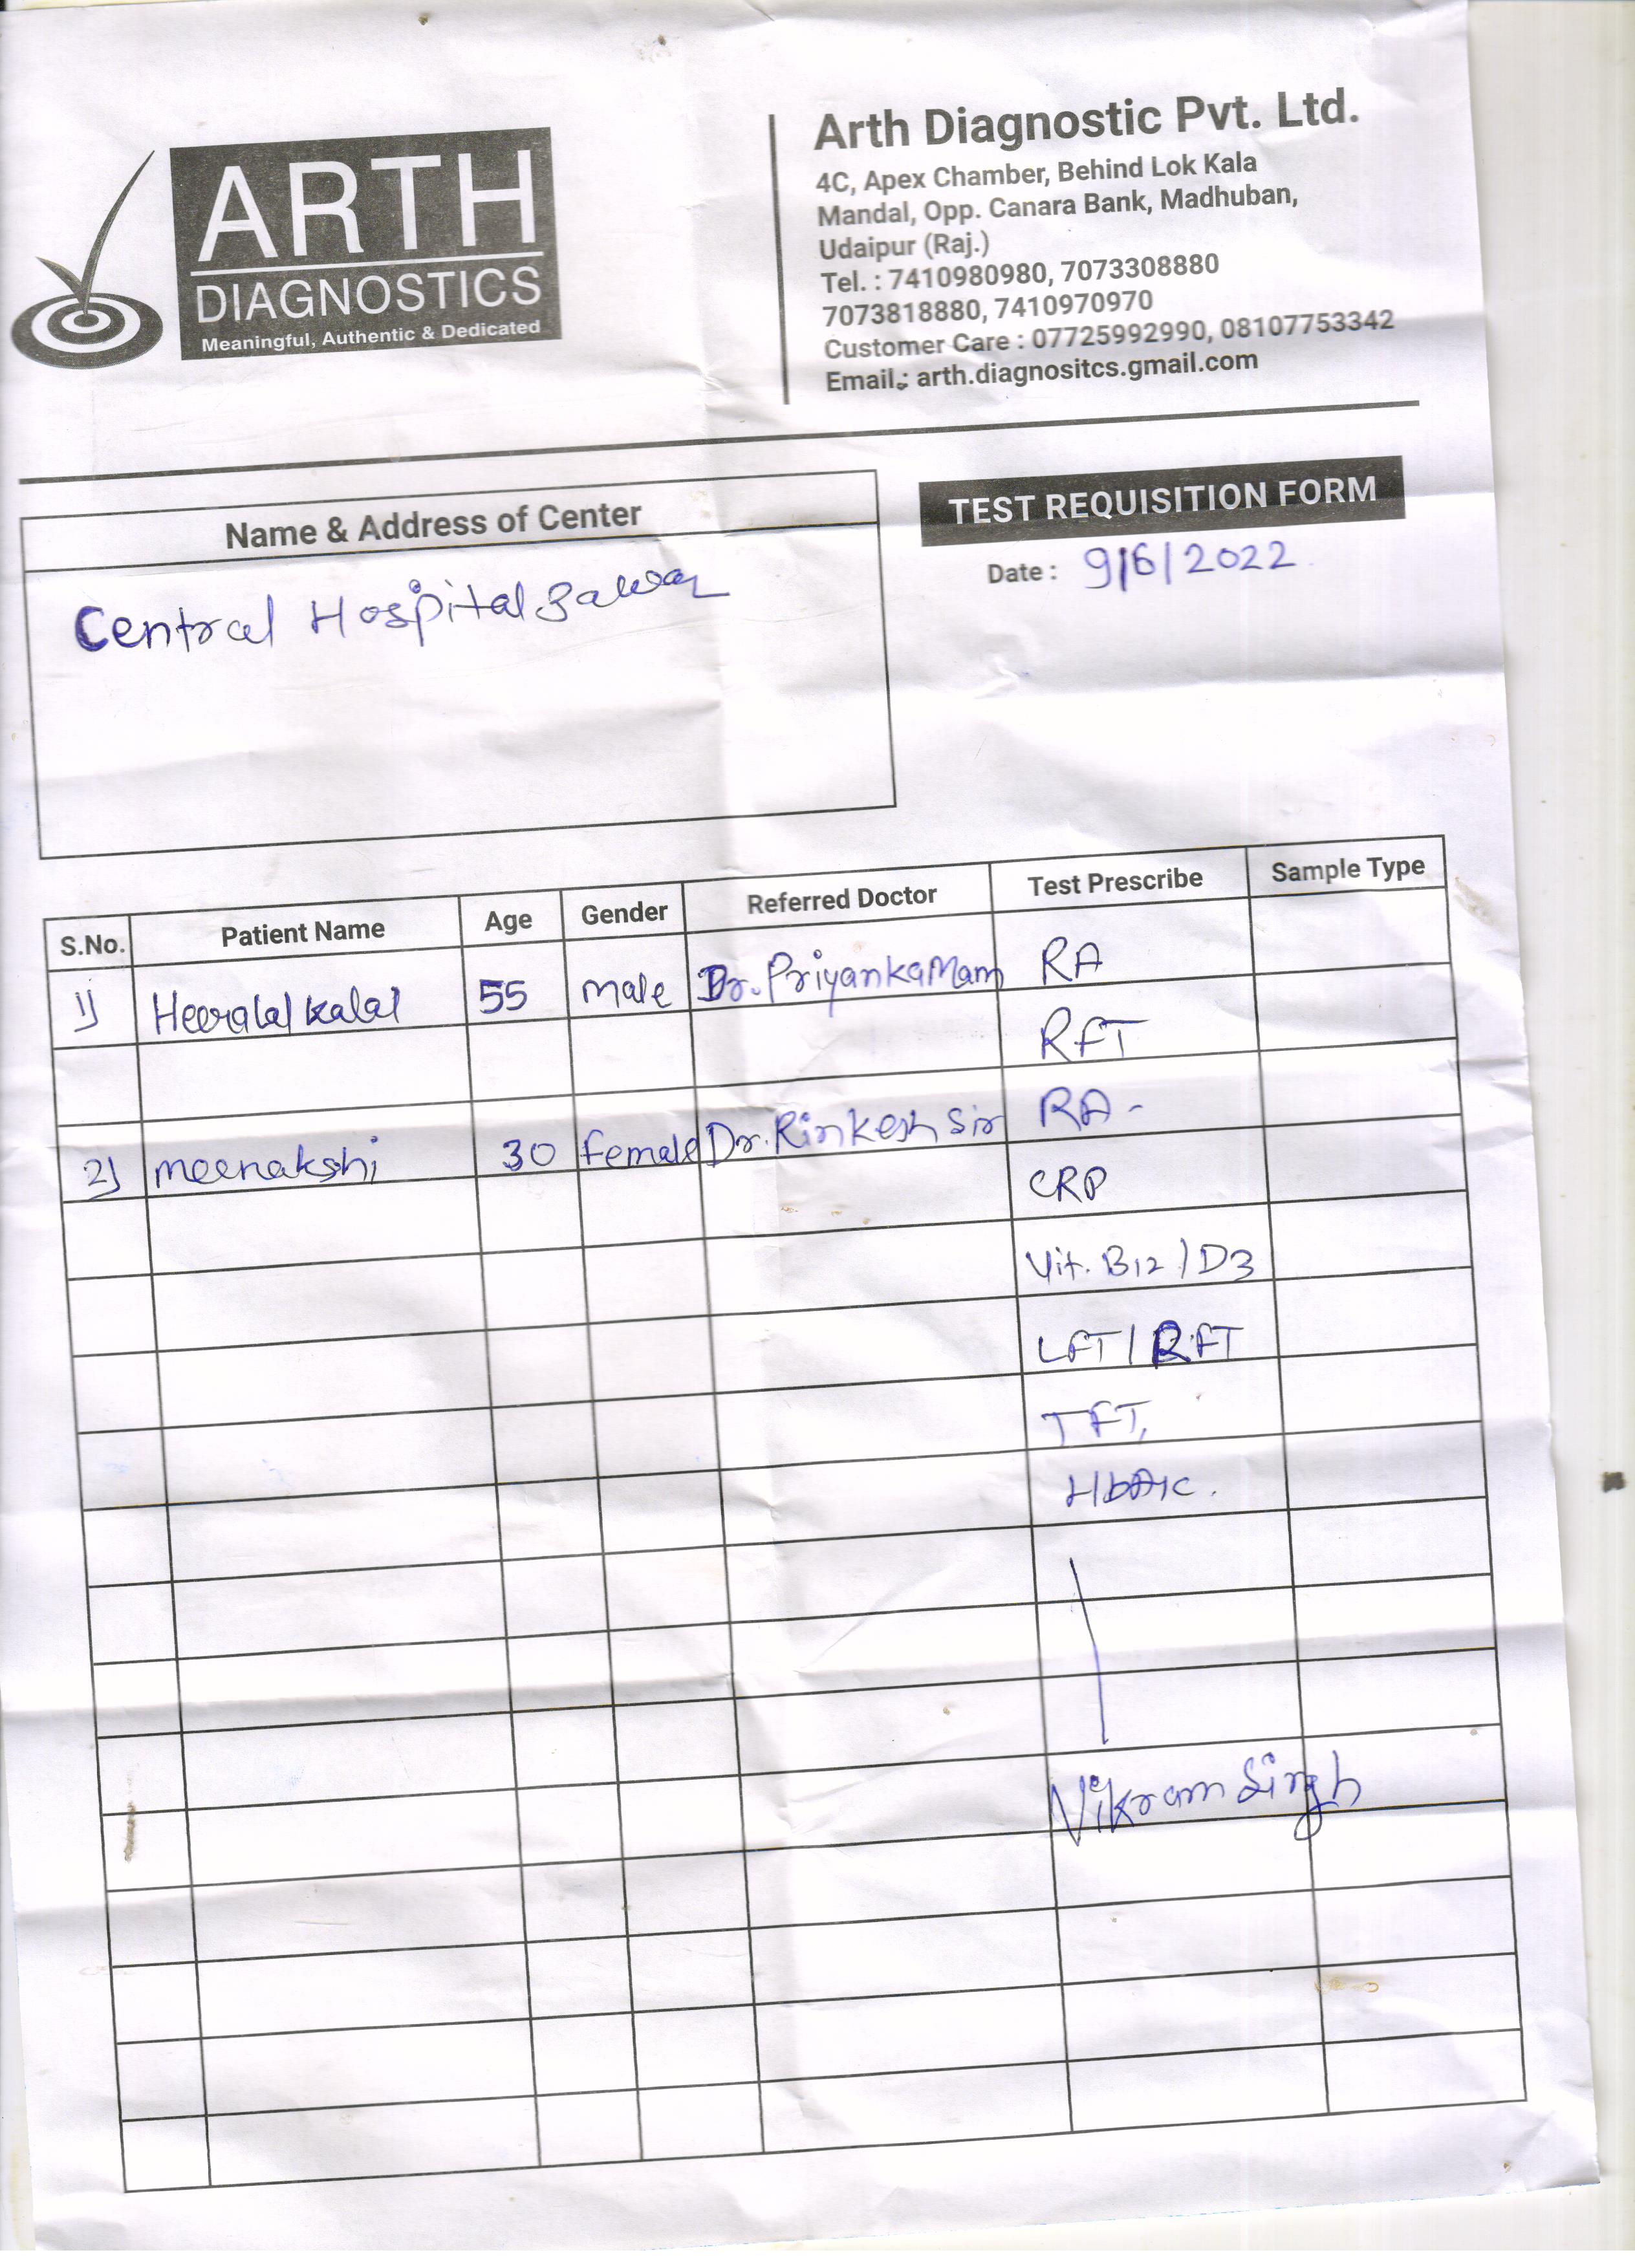 ARTH
DIAGNOSTICS
Meaningful, Authentic & Dedicated
Arth Diagnostic Pvt. Ltd.
4C, Apex Chamber, Behind Lok Kala
Mandal, Opp. Canara Bank, Madhuban,
Udaipur (Raj.)
Tel. : 7410980980, 7073308880
7073818880, 7410970970
Customer Care : 07725992990, 08107753342
Email.: arth.diagnositcs.gmail.com
Name & Address of Center
Central Hospital
TEST REQUISITION FORM
Date : 9/6/2022
S.No. Patient Name Age Gender Referred Doctor Test Prescribe Sample Type
1) Heeralal kalal 55 male Dr. Priyanka Mam RA
RFT
2) meenakshi 30 female Dr. Rinkesh Sir RA -
CRP
Vit. B12 / D3
LFT / RFT
TFT,
HbA1c.
Vikram Singh